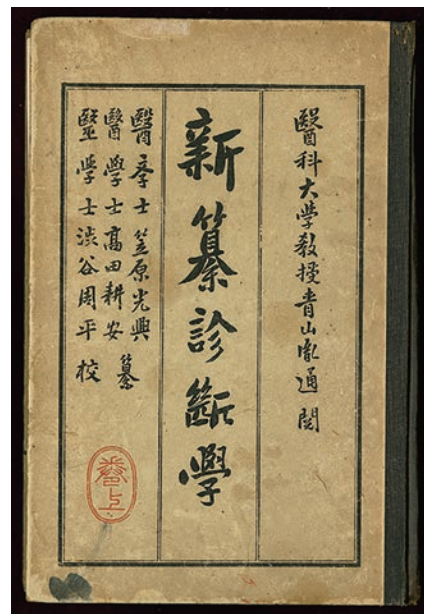 醫科大學教授青山胤通閱
新纂診斷學
醫學士笠原光興
醫學士高田耕安 纂
醫學士渋谷周平 校